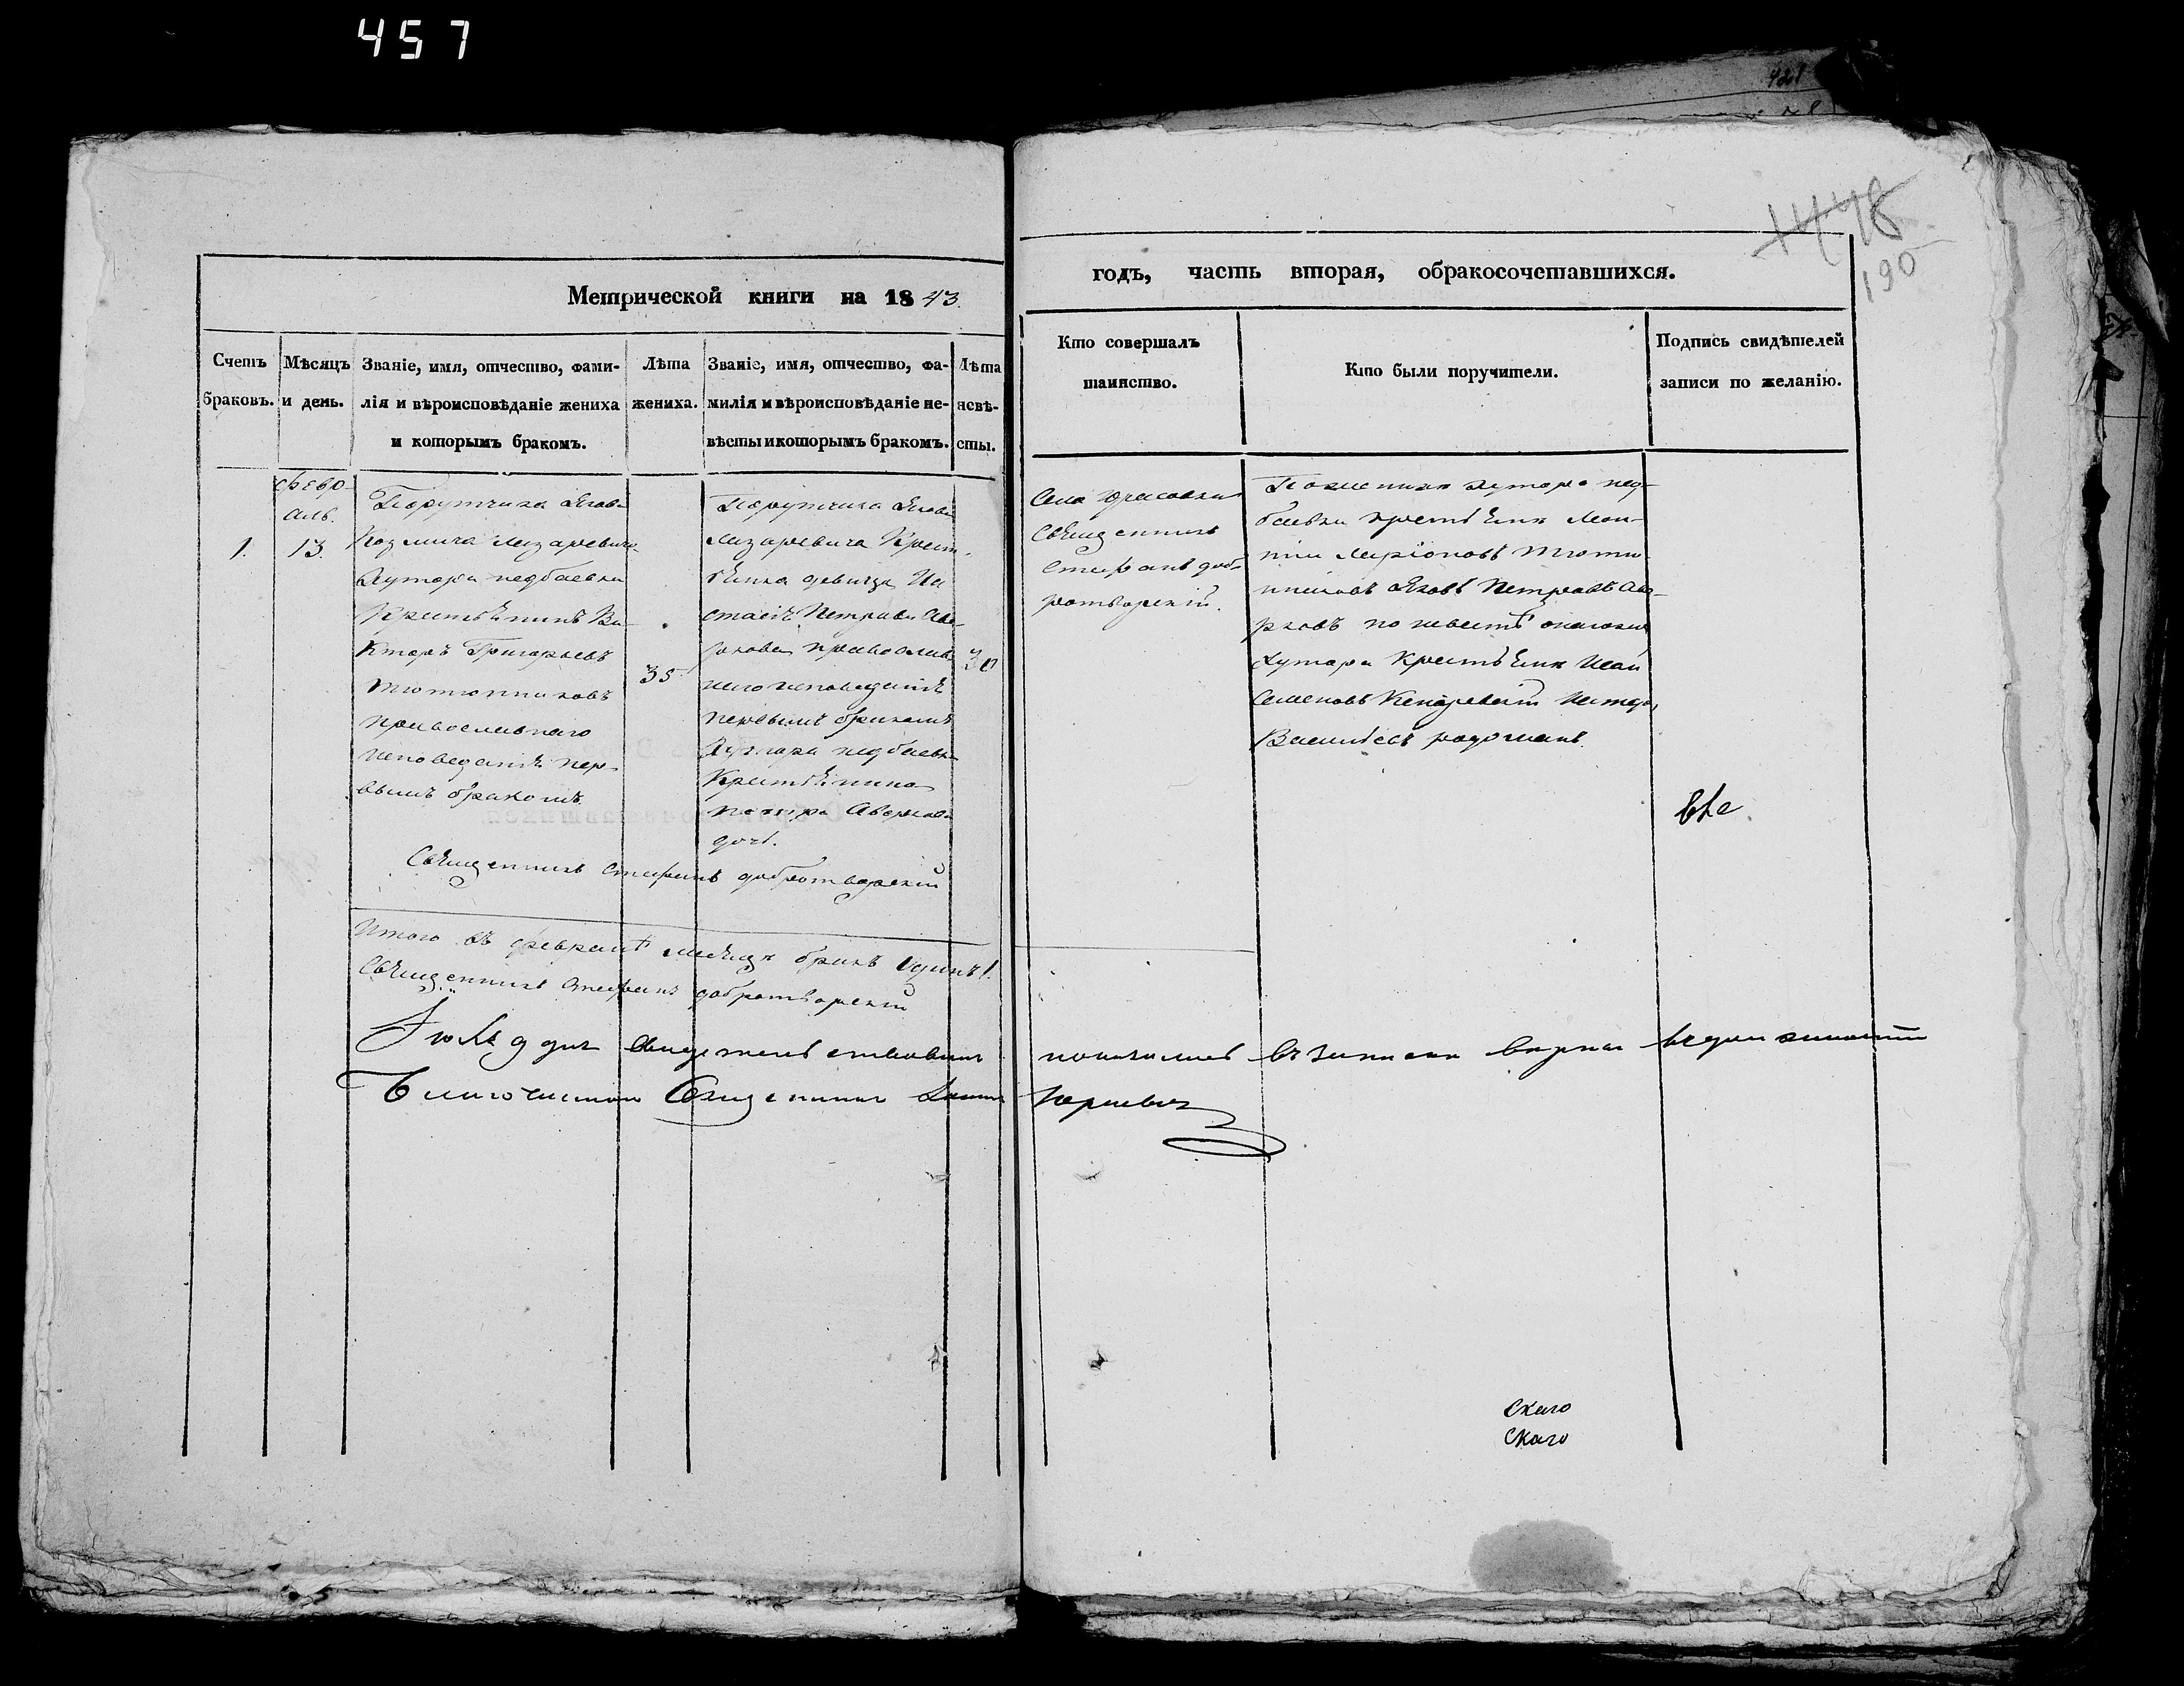 457
421
1448
190
Метрической книги на 1843.
годъ, часть вторая, обракосочетавшихся.
Счетъ браковъ.
Мѣсяцъ и день.
Званіе, имя, отчество, фами-
лія и вѣроисповѣданіе жениха
и которымъ бракомъ.
Лѣта
жениха.
Званіе, имя, отчество, фа-
милія и вѣроисповѣданіе не-
вѣсты и которымъ бракомъ.
Лѣта
невѣ-
сты.
Кто совершалъ
таинство.
Кто были поручители.
Подпись свидѣтелей
записи по желанію.
1.
Февр-
аль.
13
Порутчика Якова
Козмича Лазаревича
Хутора недбаевки
Крестьянинъ Ви-
кторъ Григорьевъ
Тютюнниковъ
православнаго
исповеданія пер-
вымъ бракомъ
35
Порутчика Якова
Лазаревича Крест-
ьянка девица На
стасія Петрова Аве-
ркова православ
наго исповеданія
первымъ бракомъ
Хутора недбаевки
Крестьянина
Петра Аверкова
дочь.
30
Села
Священникъ
Стефанъ доб-
ротворскій.
хутора нед-
баевки крестьяне
Ларіоновъ Тютю
нниковъ Яковъ Петровъ Аве-
рковъ по невесте
Хутора Крестьяне Иван
Семеновъ
Василіевъ
Священникъ Стефанъ добротворскій
Итого въ февралѣ месяцѣ бракъ одинъ 1.
Священникъ Стефанъ добротворскій
Іюля 9 дня свидетельствовалъ по
Благочинный Священникъ
Скаго
Скаго